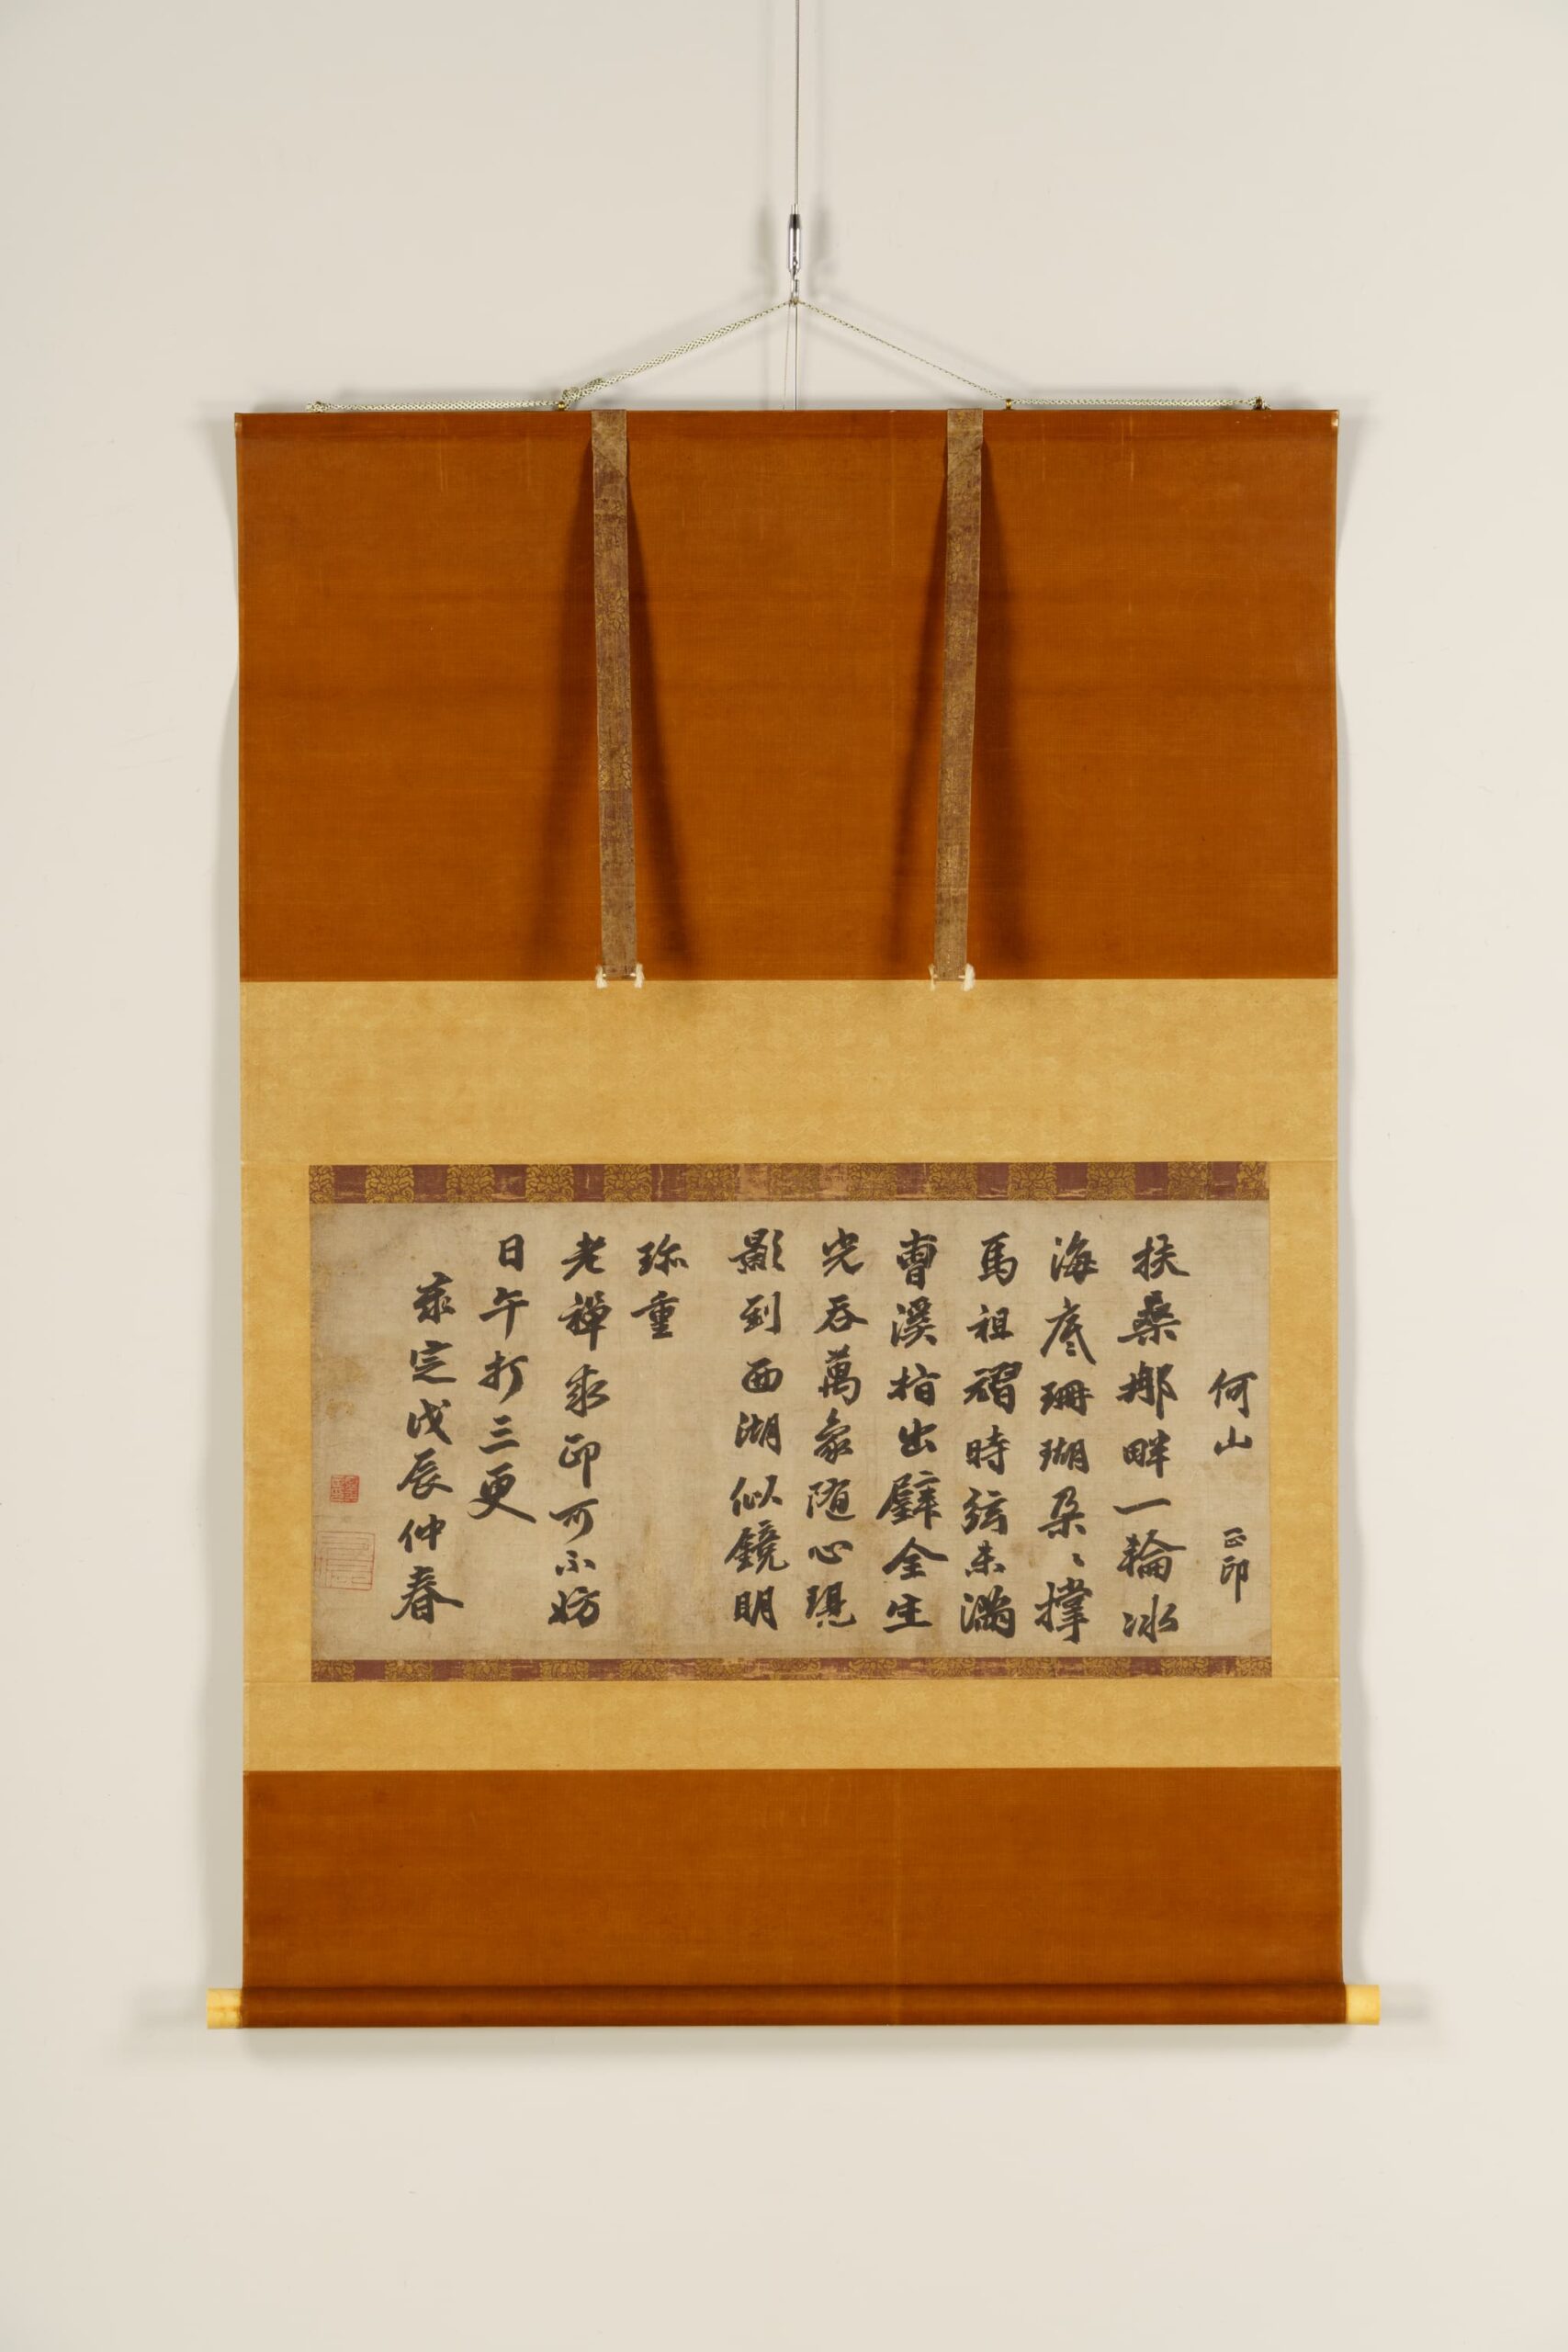 何山 正印
扶桑那畔一輪冰
海底珊瑚朶〻撑
馬祖翫時弦未滿
曹溪指出璧全生
光吞萬象随心現
影到西湖似鏡明
珎重
老禪求印可不妨
日午打三更
泰定戊辰仲春